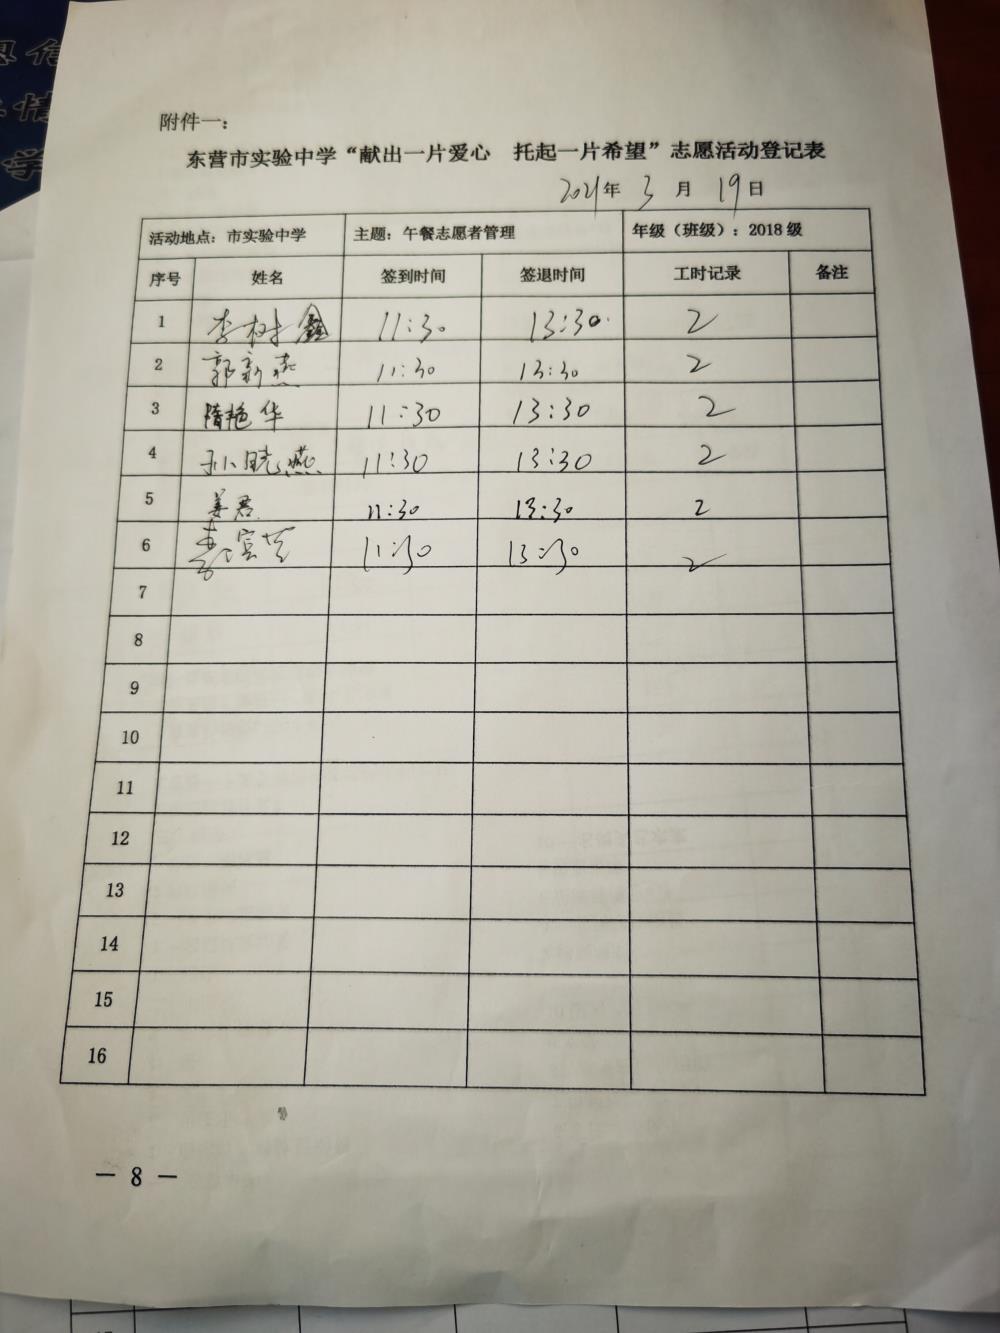 附件一：
东营市实验中学“献出一片爱心 托起一片希望”志愿活动登记表
2021年 3 月 19 日
活动地点：市实验中学 主题：午餐志愿者管理 年级（班级）：2018 级
序号 姓名 签到时间 签退时间 工时记录 备注
1 李树鑫 11:30 13:30 2
2 郭新燕 11:30 13:30 2
3 隋艳华 11:30 13:30 2
4 孙晓燕 11:30 13:30 2
5 姜君 11:30 13:30 2
6 11:30 13:30 2
7
8
9
10
11
12
13
14
15
16
— 8 —